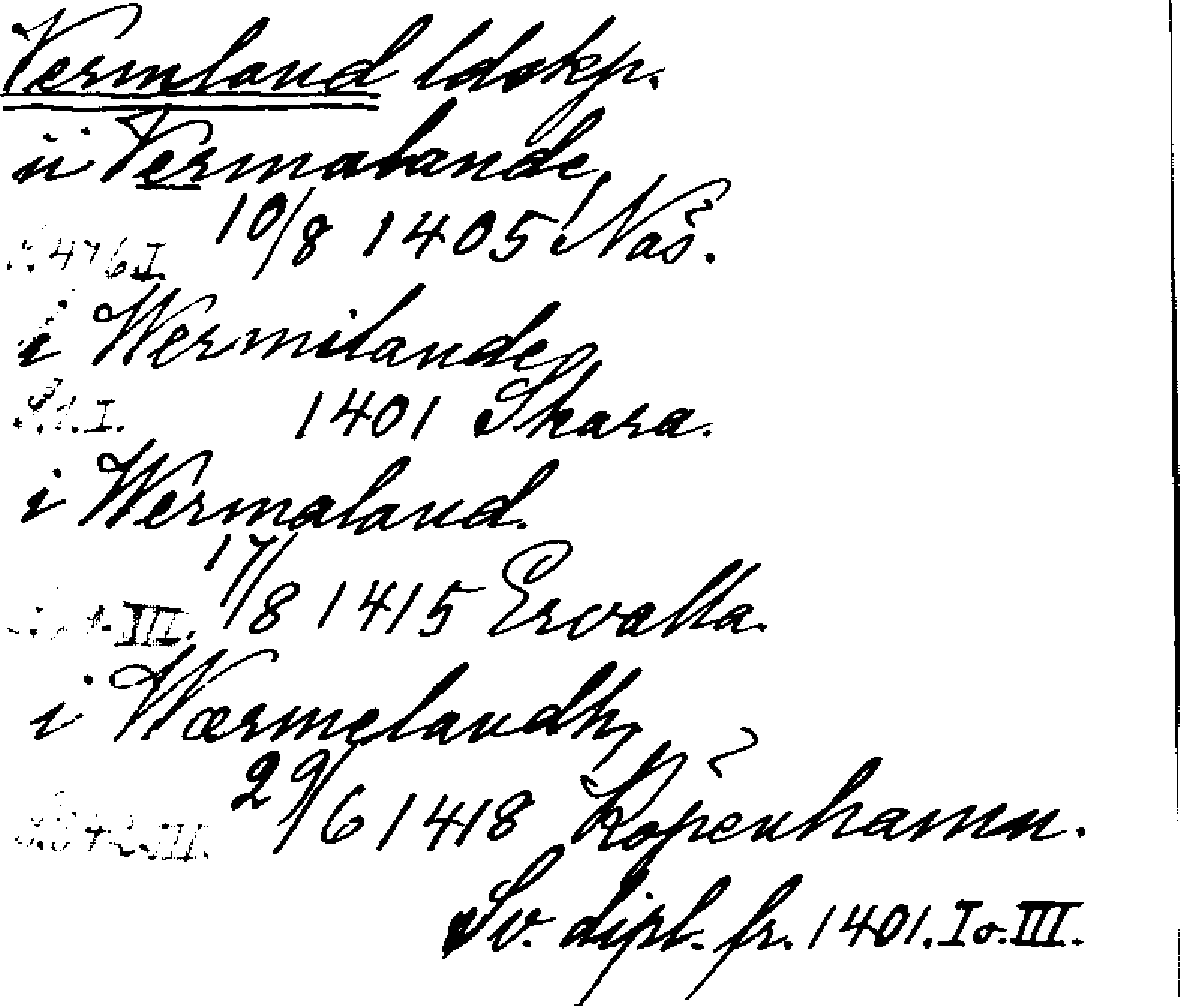 Vermland ldskp.
ii Vermalande,
10/8 1405 Näs.
S. 476 I.
i Wermilande,
S. 1. I. 1401 Skara.
i Wermaland.
17/8 1415 Ervalla.
III.
i Wærmelandh,
29/6 1418 Köpenhamn.
III.
Sv. dipl. fr. 1401. I o. III.